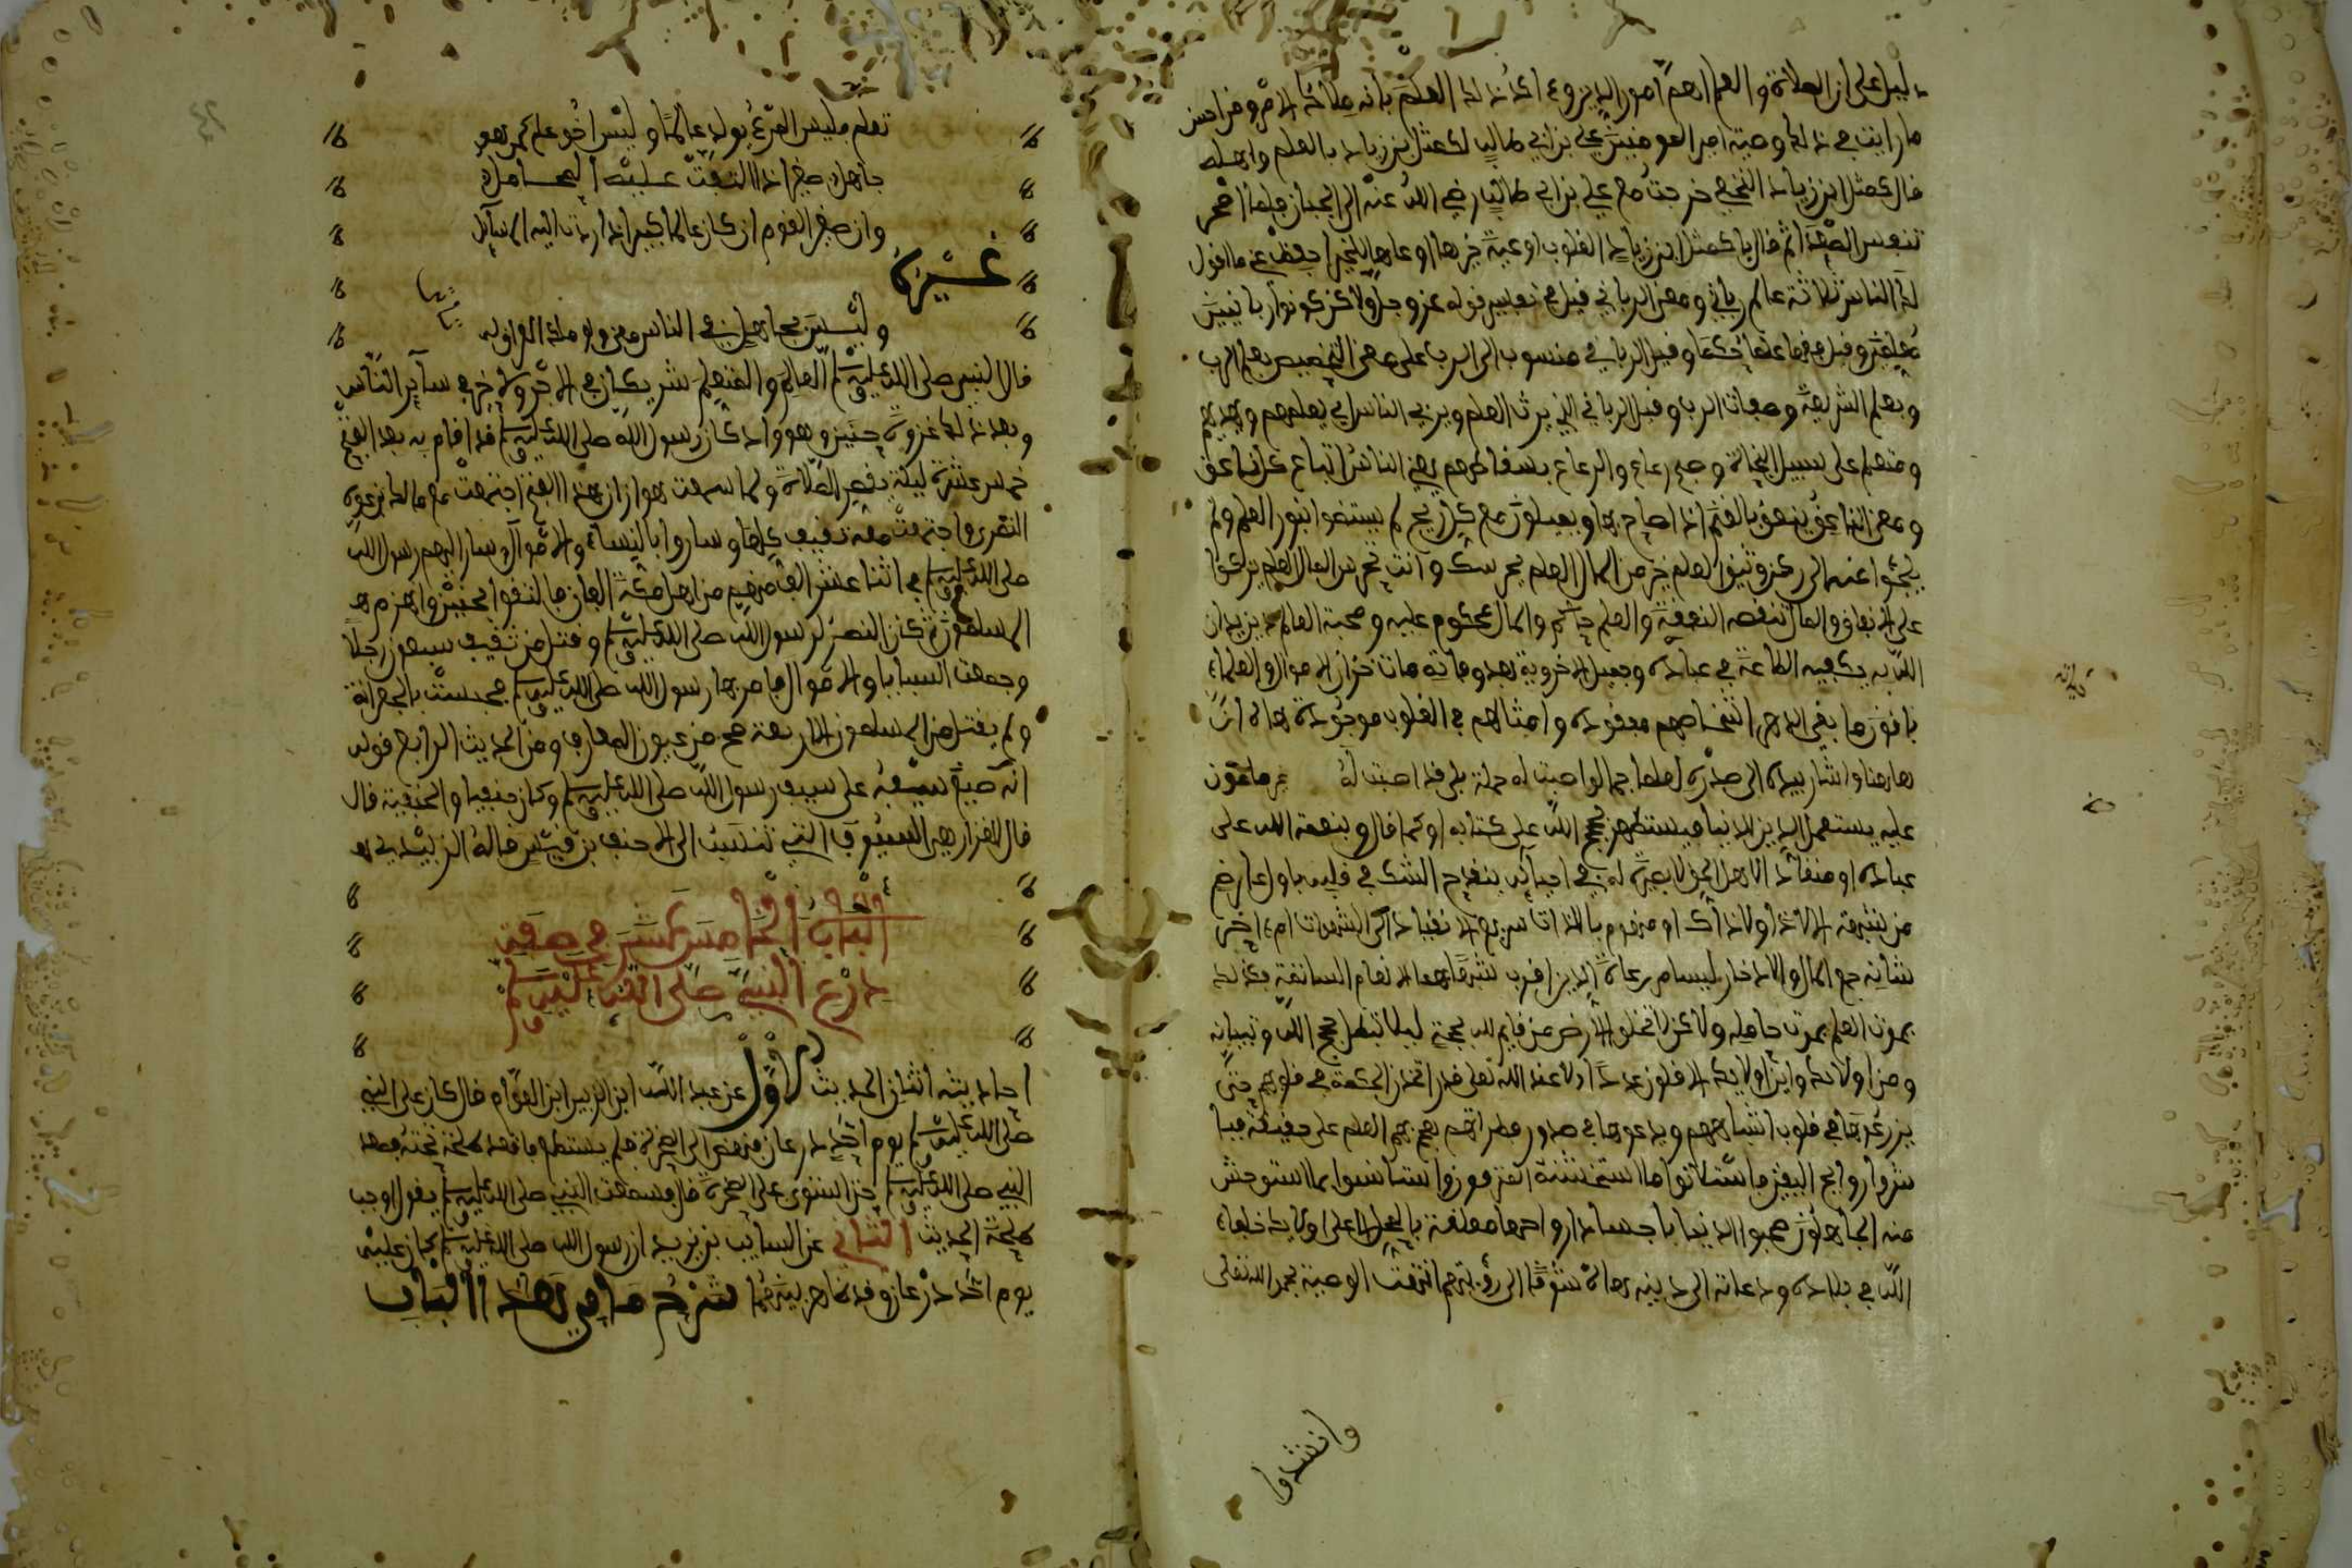 دليل على ان الصلاة والعلم اهم امور الدين وءاكد ذلك العلم بانه ملاك الامر ومن احسن
ما رايت في ذلك وصية امير المومنين علي بن ابي طالب لكميل بن زياد بالعلم واهله
قال كميل ابن زياد النخعي خرجت مع علي بن ابي طالب رضي الله عنه الى الجبان فلما اصحر
تنفس الصعداء ثم قال يا كميل ابن زياد القلوب اوعية خيرها اوعاها للخير احفظ عني ما اقول
لك الناس ثلاثة عالم رباني ومعنى الرباني قيل في تفسير قوله عز وجل ولاكن كونوا ربانيين
معلمين وقيل فقهاء علماء حكماء وقيل الرباني منسوب الى الرب على معنى التخصيص بعلم الرب
وبعلم الشريعة وصفات الرب وقيل الرباني الذي يرث العلم ويربي الناس اي يعلمهم ويهديهم
ومتعلم على سبيل النجاة وهمج رعاع والرعاع بسقاطهم يعني الناس اتباع كل ناعق
ومعنى الناعق ينعق بالغنم اذا صاح بها ويميلون مع كل ريح لم يستضوا بنور العلم ولم
يلجئوا عنه الى ركن وثيق العلم خير من المال العلم يحرسك وانت تحرس المال العلم يزكوا
على الانفاق والمال تنقصه النفقة والعلم حاكم والمال محكوم عليه وصحبة العالم يزيد ان
الله به يكفيه الطاعة في عباده وجميل الاخروية بعد وفاته مات خزان الاموال والعلماء
باقون ما بقي الدهر اشخاصهم مفقودة وامثالهم في القلوب موجودة هاه ان
هاهنا واشار بيده الى صدره لعلما جما لو اصبت له حملة بلى قد اصبت له غير مامون
عليه يستعمل الدين للدنيا فيستظهر بحجج الله على كتابه او كما قال وبنعمة الله على
عباده او منقادا لاهل الحق لا بصيرة له في احيائه ينقدح الشك في قلبه باول عارض
من شبهة الا لا ذا ولا ذاك او منهوم باللذات سريع الانقياد الى الشهوات ام ءاخر
شانه جمع المال والادخار ليسا من رعاة الدين اقرب شبها بهما الانعام السائمة فكذلك
يموت العلم بموت حامله ولاكن لا تخلوا الارض من قايم لله بحجة ليلا تبطل حجج الله وتبيانه
ومن اولائك واين اولائك الاقلون عددا عند الله تعلى قدرا تخذ الحكمة في قلوبهم حتى
يزرعوها في قلوب اشباههم ويدعوها في صدور نظرائهم هجم بهم العلم على حقيقة فبا
شروا روايح اليقين فاستلانوا ما استخشنه المترفون واستانسوا بما استوحش
منه الجاهلون صحبوا الدنيا باجساد ارواحها معلقة بالمحل الاعلى اولايك خلفاء
الله في بلاده ودعاته الى دينه هاه شوقا الى رؤيتهم انتهت الوصية بحمد الله تعلى
وانشدوا
تعلم فليس المرء يولد عالما وليس اخو علم كمن هو
جاهل صغير اذا التفت عليه المحامل
وان صغير القوم ان كان عالما كبير اذا ردت اليه المسايل
غيره
وليس بجاهل في الناس مغن ولو ملك العراق له
قال النبي صلى الله عليه وسلم العالم والمتعلم شريكان في الاجر ولا خير في سآير الناس
وبعد ذلك غزوة حنين وهو واد كان رسول الله صلى الله عليه وسلم قد اقام به بعد الفتح
خمس عشرة ليلة يقصر الصلاة ولما سمعت هوازن بهذا الفتح اجتمعت مع مالك بن عوف
النصري واجتمعت معه ثقيف كلها وساروا بالنساء والاموال وسار اليهم رسول الله
صلى الله عليه وسلم في اثنا عشر الف منهم من اهل مكة الفان فالتقوا بحنين وانهزم
المسلمون ثم كان النصر لرسول الله صلى الله عليه وسلم وقتل من ثقيف سبعون رجلا
وجمعت السبايا والاموال فامر بها رسول الله صلى الله عليه وسلم فحبست بالجعرانة
ولم يقتل من المسلمون الا اربعة صح من عيون المعارف ومن الحديث الرابع قوله
انه صنع سيفه على سيف رسول الله صلى الله عليه وسلم وكان حنفيا والحنفية قال
قال القزاز هي السيوف التي تنسب الى الاحنف بن قيس قاله الزبيدي
الباب الخامس عشر في صفة
درع النبي صلى الله عليه وسلم
احاديثه اثنان الحديث الاول عن عبد الله ابن الزبير ابن العوام قال كان على النبي
صلى الله عليه وسلم يوم احد درعان فنهض الى الصخرة فلم يستطع فاقعد طلحة تحته فصعد
النبي صلى الله عليه وسلم حتى استوى على الصخرة قال فسمعت النبي صلى الله عليه وسلم يقول اوجب
طلحة الحديث الثاني عن السايب بن يزيد ان رسول الله صلى الله عليه وسلم كان عليه
يوم احد درعان وقد ظاهر بينهما شرح ما في هذا الباب